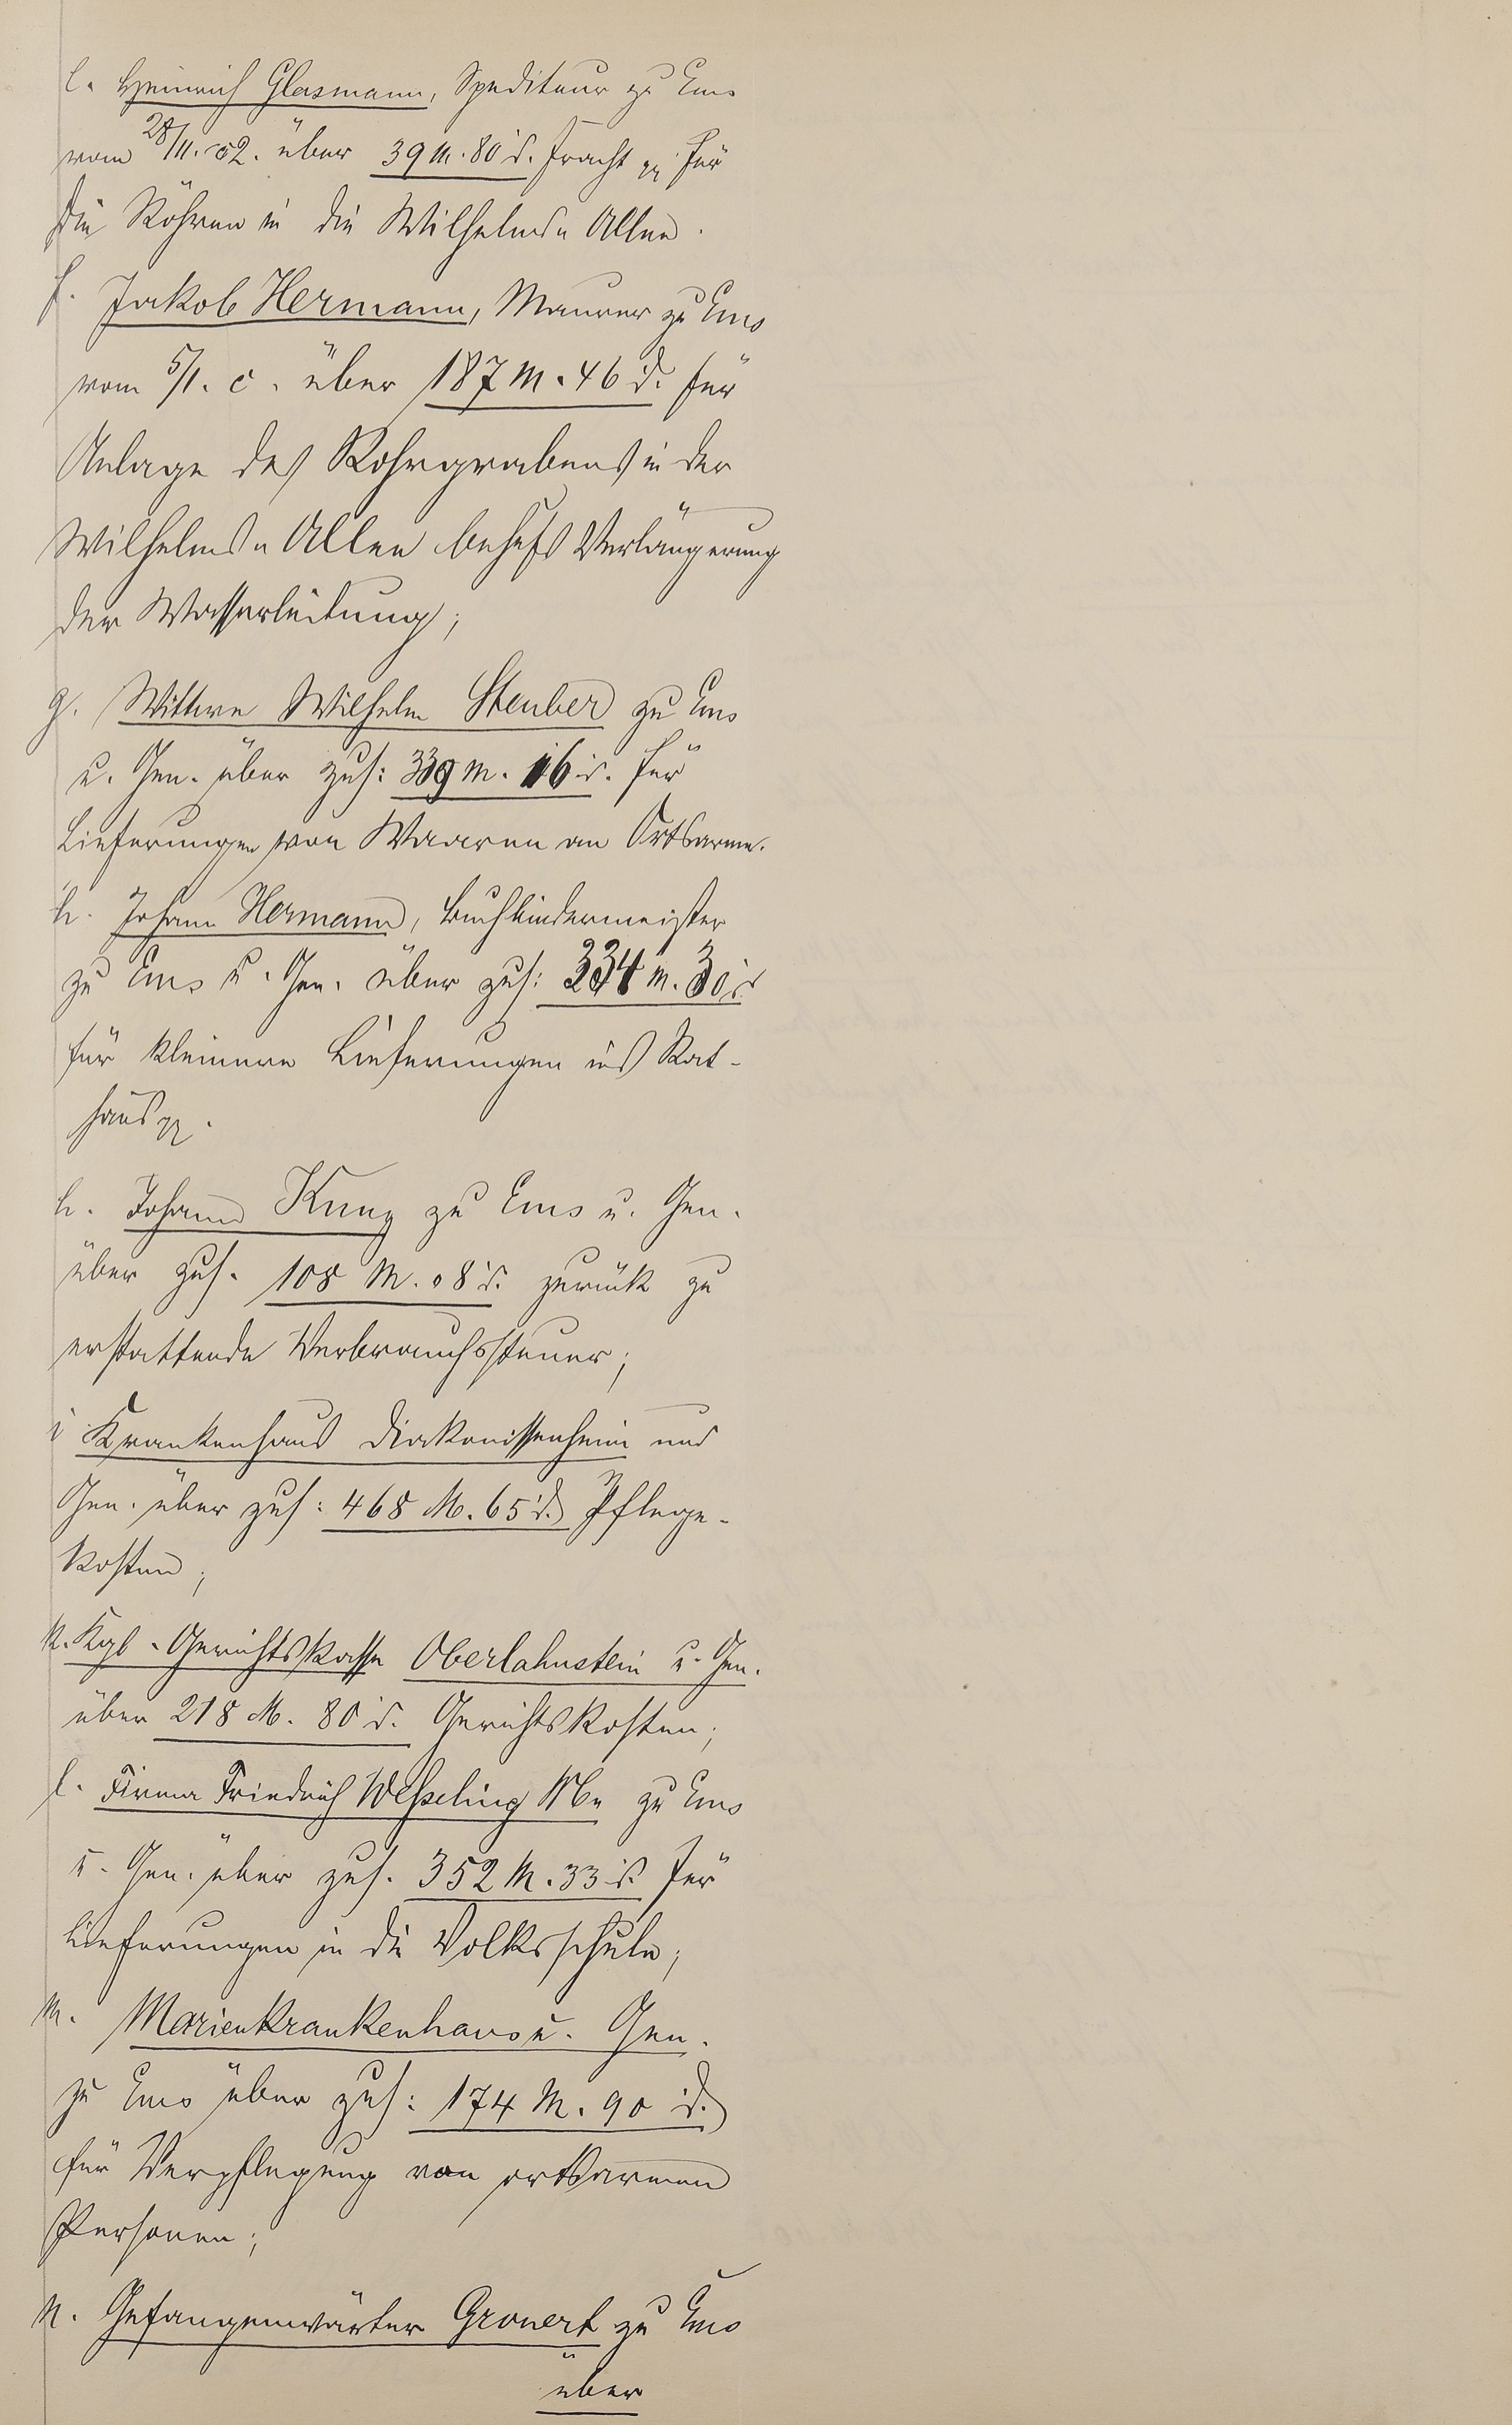 e. Heinrich Glasmann, Spediteur zu Ems
vom 28/11. 02. über 39 M. 80 d. Fracht pp für
die Röhren in die Wilhelms-Allee.
f. Jakob Hermann, Maurer zu Ems
vom 5/1. c. über 187 M. 46 d. für
Anlage des Rohrgrabens in der
Wilhelms-Allee behufs Verlängerung
der Wasserleitung;
g. Wittwe Wilhelm Steuber zu Ems
u. Gen. über zus: 339 M. 16 d. für
Lieferungen von Waaren an Ortsarme.
h. Johann Hermann, Buchbindermeister
zu Ems u. Gen. über zus: 334 M. 30 d
für kleinere Lieferungen ins Rat-
haus pp.
h. Johann Kunz zu Ems u. Gen.
über zus. 108 M. 08 d. zurück zu
erstattende Verbrauchssteuer;
i Krankenhaus Diakonissenheim und
Gen. über zus: 468 M. 65 d. Pflege-
kosten;
k. Kgl. Gerichtskasse Oberlahnstein u. Gen.
über 218 M. 80 d. Gerichtskosten;
l. Firma Friedrich Wesseling zu Ems
u. Gen. über zus. 352 M. 33 d. für
Lieferungen in die Volksschule;
m. Marienkrankenhaus u. Gen.
zu Ems über zus: 174 M. 90 d.
für Verpflegung von ortsarmen
Personen;
n. Gefangenwärter Gronert zu Ems
über